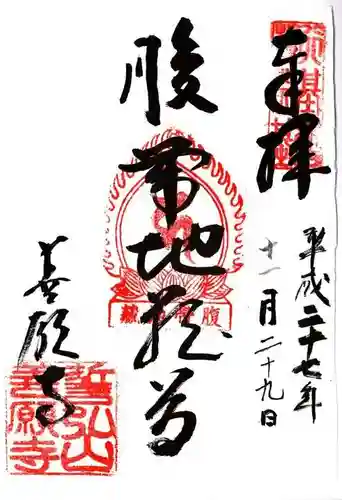 奉拝
平成二十七年
十一月二十九日
腹帯地蔵尊
善願寺
善願寺